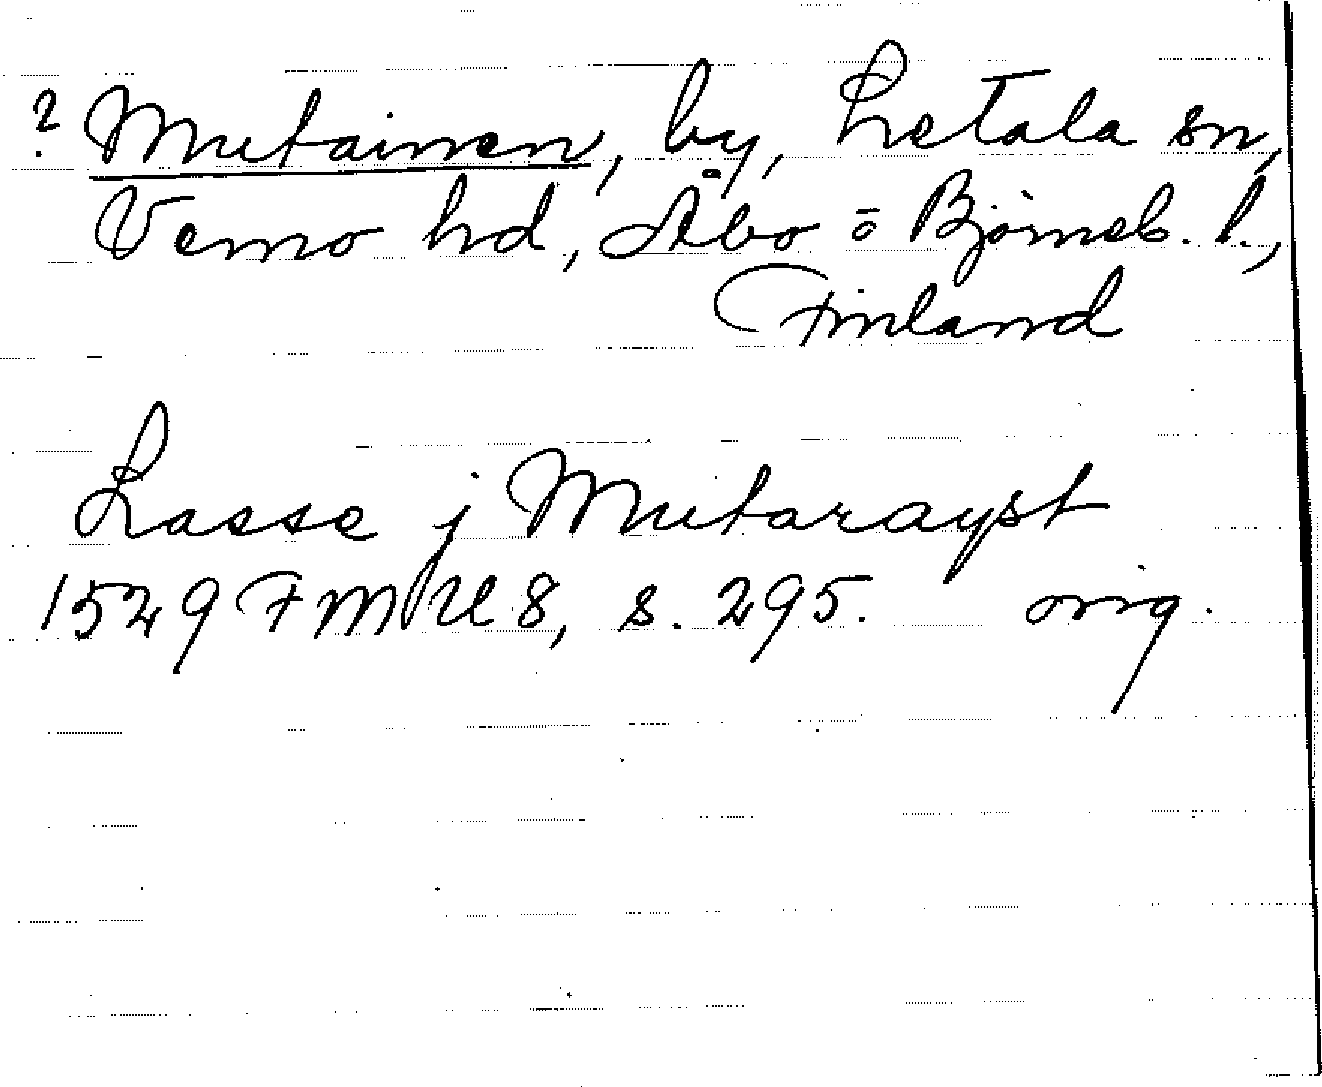 ? Mutainen, by, Letala sn,
Vemo hd, Åbo o Björneb. l.,
Finland
Lasse j Mutarayst
1529 FMU 8, s. 295. orig.